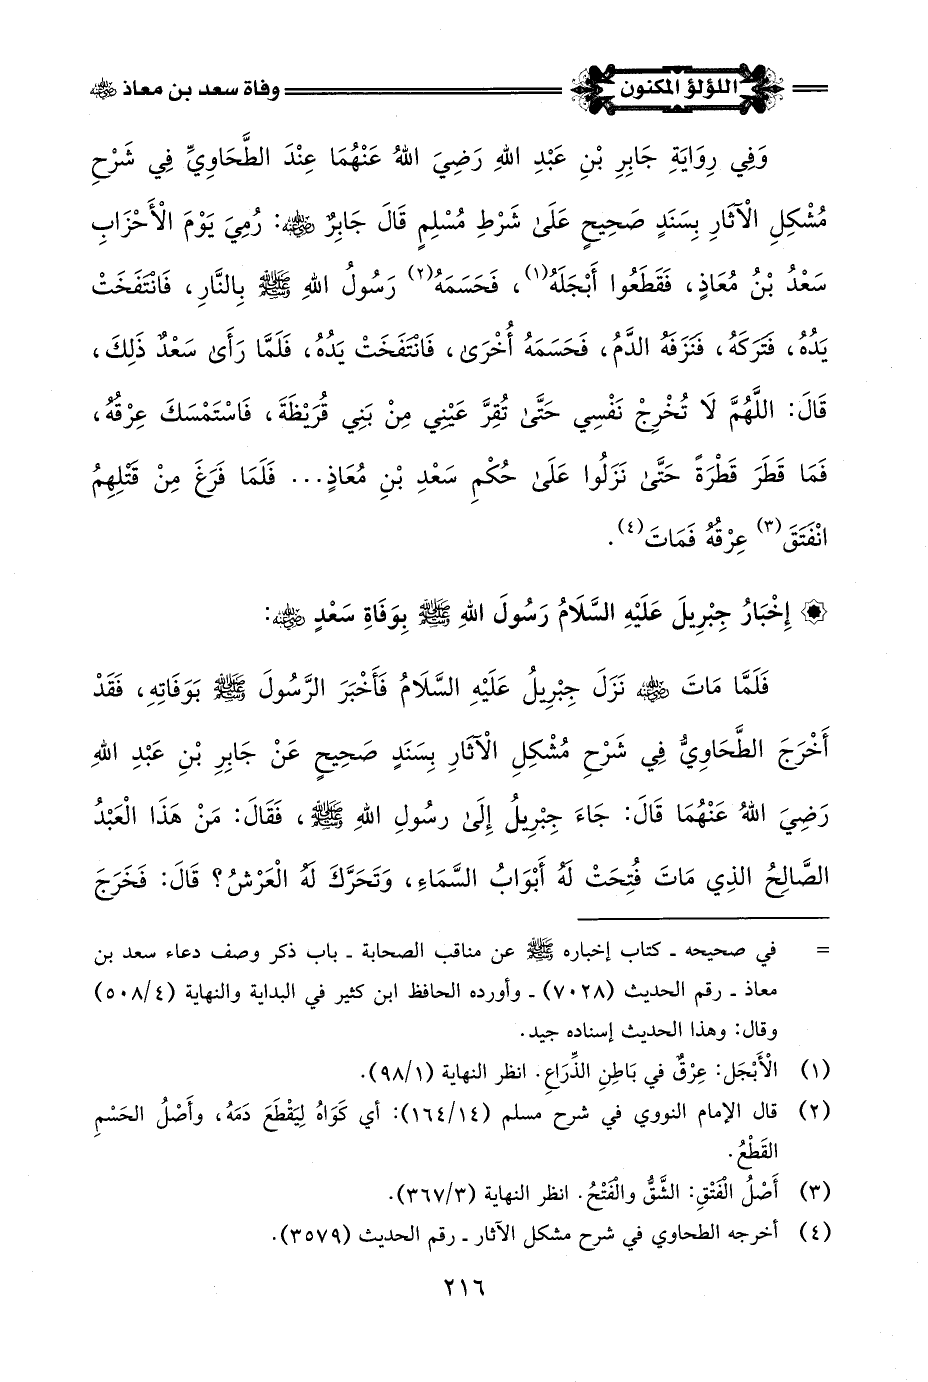 اللؤلؤ المكنون وفاة سعد بن معاذ ﵁
وَفِي رِوَايَةِ جَابِرِ بْنِ عَبْدِ اللهِ رَضِيَ اللهُ عَنْهُمَا عِنْدَ الطَّحَاوِيِّ فِي شَرْحِ
مُشْكِلِ الْآثَارِ بِسَنَدٍ صَحِيحٍ عَلَىٰ شَرْطِ مُسْلِمٍ قَالَ جَابِرٌ ﵁: رُمِيَ يَوْمَ الْأَحْزَابِ
سَعْدُ بْنُ مُعَاذٍ، فَقَطَعُوا أَبْجَلَهُ(١)، فَحَسَمَهُ(٢) رَسُولُ اللهِ ﷺ بِالنَّارِ، فَانْتَفَخَتْ
يَدُهُ، فَتَرَكَهُ، فَنَزَفَهُ الدَّمُ، فَحَسَمَهُ أُخْرَىٰ، فَانْتَفَخَتْ يَدُهُ، فَلَمَّا رَأَىٰ سَعْدٌ ذَلِكَ،
قَالَ: اللَّهُمَّ لَا تُخْرِجْ نَفْسِي حَتَّىٰ تُقِرَّ عَيْنِي مِنْ بَنِي قُرَيْظَةَ، فَاسْتَمْسَكَ عِرْقُهُ،
فَمَا قَطَرَ قَطْرَةً حَتَّىٰ نَزَلُوا عَلَىٰ حُكْمِ سَعْدِ بْنِ مُعَاذٍ... فَلَمَّا فَرَغَ مِنْ قَتْلِهِمُ
انْفَتَقَ(٣) عِرْقُهُ فَمَاتَ(٤).
إِخْبَارُ جِبْرِيلَ عَلَيْهِ السَّلَامُ رَسُولَ اللهِ ﷺ بِوَفَاةِ سَعْدٍ ﵁:
فَلَمَّا مَاتَ ﵁ نَزَلَ جِبْرِيلُ عَلَيْهِ السَّلَامُ فَأَخْبَرَ الرَّسُولَ ﷺ بَوَفَاتِهِ، فَقَدْ
أَخْرَجَ الطَّحَاوِيُّ فِي شَرْحِ مُشْكِلِ الْآثَارِ بِسَنَدٍ صَحِيحٍ عَنْ جَابِرِ بْنِ عَبْدِ اللهِ
رَضِيَ اللهُ عَنْهُمَا قَالَ: جَاءَ جِبْرِيلُ إِلَىٰ رسُولِ اللهِ ﷺ، فَقَالَ: مَنْ هَذَا الْعَبْدُ
الصَّالِحُ الذِي مَاتَ فُتِحَتْ لَهُ أَبْوَابُ السَّمَاءِ، وَتَحَرَّكَ لَهُ الْعَرْشُ؟ قَالَ: فَخَرَجَ
= في صحيحه ـ كتاب إخباره ﷺ عن مناقب الصحابة ـ باب ذكر وصف دعاء سعد بن
معاذ ـ رقم الحديث (٧٠٢٨) ـ وأورده الحافظ ابن كثير في البداية والنهاية (٥٠٨/٤)
وقال: وهذا الحديث إسناده جيد.
(١) الْأَبْجَل: عِرْقٌ في بَاطِنِ الذِّرَاعِ. انظر النهاية (٩٨/١).
(٢) قال الإمام النووي في شرح مسلم (١٦٤/١٤): أي كَوَاهُ لِيَقْطَعَ دَمَهُ، وأَصْلُ الحَسْمِ
القَطْعُ.
(٣) أَصْلُ الْفَتْقِ: الشَّقُّ والْفَتْحُ. انظر النهاية (٣٦٧/٣).
(٤) أخرجه الطحاوي في شرح مشكل الآثار ـ رقم الحديث (٣٥٧٩).
٢١٦